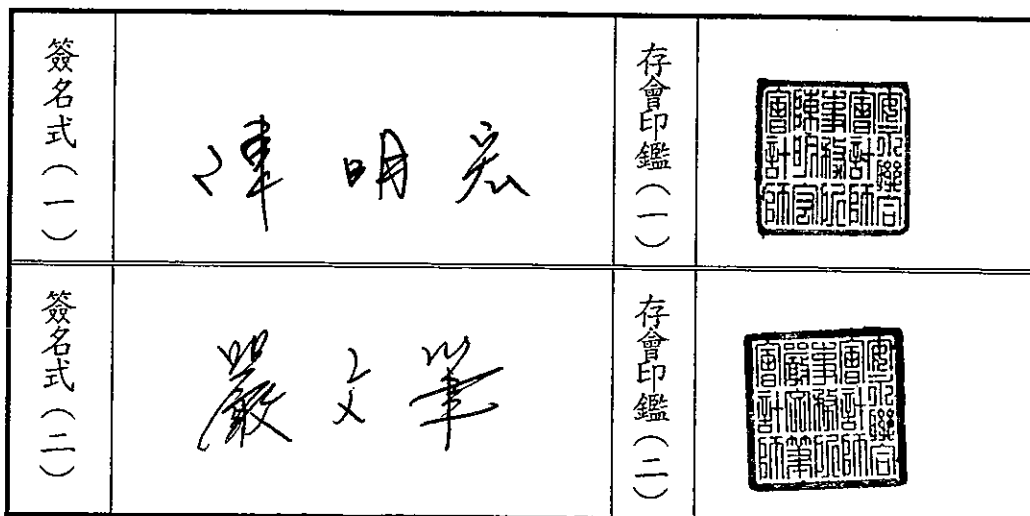 簽名式（一）
陳明宏
存會印鑑（一）
安永聯合
會計師
事務所
陳明宏
會計師
簽名式（二）
嚴文筆
存會印鑑（二）
安永聯合
會計師
事務所
嚴文筆
會計師